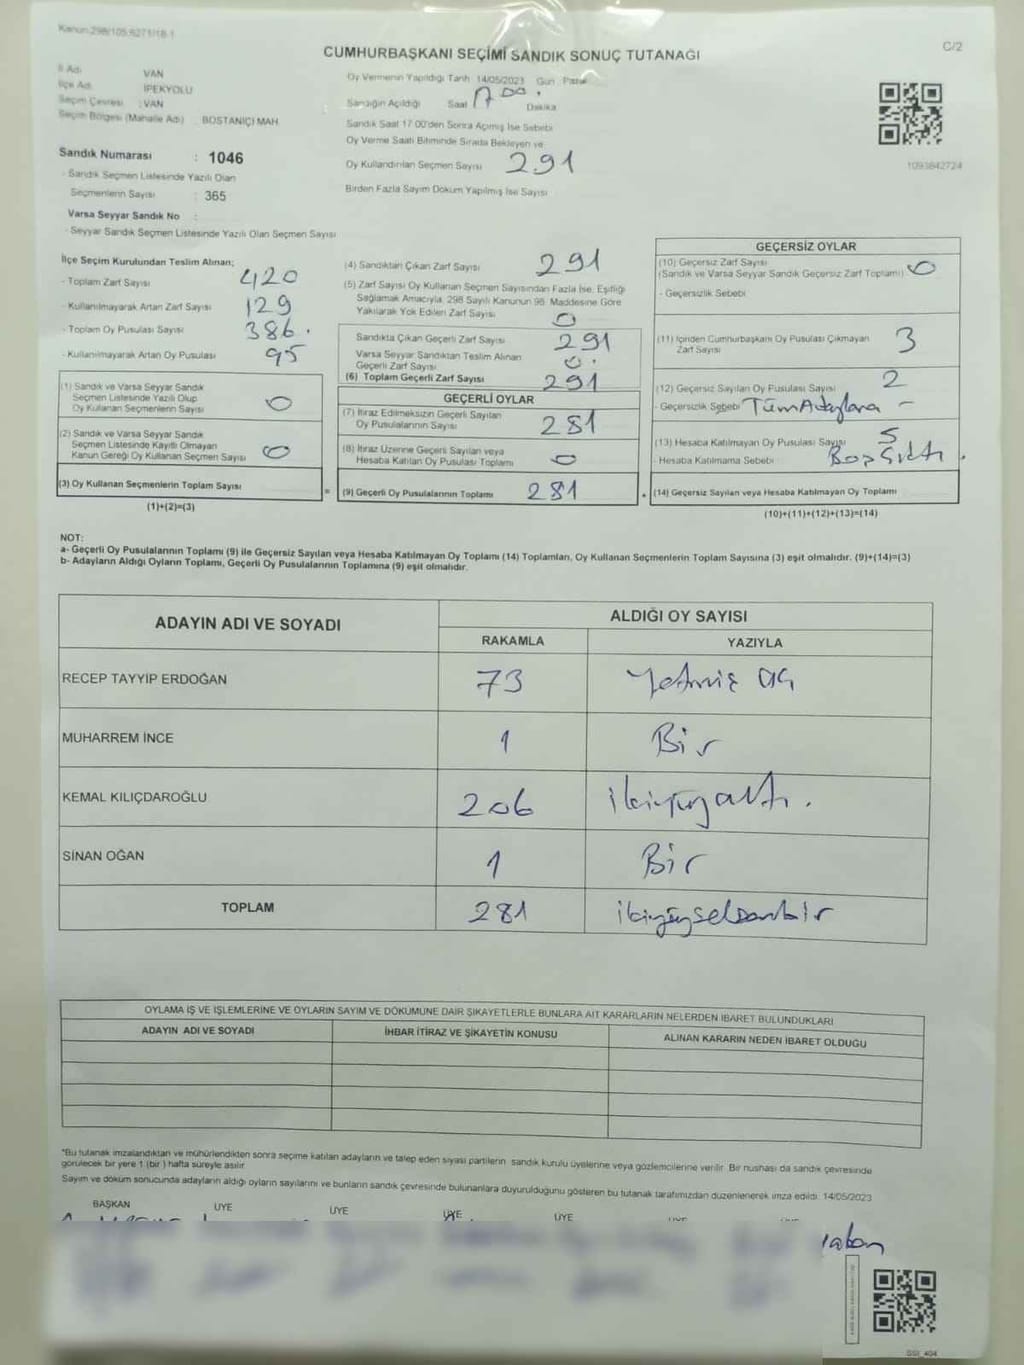 Kanun:298/105;6271/18-1
C/2
CUMHURBAŞKANI SEÇİMİ SANDIK SONUÇ TUTANAĞI
İl Adı : VAN
İlçe Adı : İPEKYOLU
Seçim Çevresi : VAN
Seçim Bölgesi (Mahalle Adı) : BOSTANİÇİ MAH.
Sandık Numarası : 1046
- Sandık Seçmen Listesinde Yazılı Olan
Seçmenlerin Sayısı : 365
Varsa Seyyar Sandık No :
- Seyyar Sandık Seçmen Listesinde Yazılı Olan Seçmen Sayısı
Oy Vermenin Yapıldığı Tarih 14/05/2023 Gün : Pazar
Sandığın Açıldığı Saat 17 00. Dakika
Sandık Saat 17:00'den Sonra Açımış İse Sebebi
Oy Verme Saati Bitiminde Sırada Bekleyen ve
Oy Kullandırılan Seçmen Sayısı 291
Birden Fazla Sayım Döküm Yapılmış İse Sayısı
1093842724
İlçe Seçim Kurulundan Teslim Alınan;
- Toplam Zarf Sayısı 420
- Kullanılmayarak Artan Zarf Sayısı 129
- Toplam Oy Pusulası Sayısı 386.
- Kullanılmayarak Artan Oy Pusulası 95
(1) Sandık ve Varsa Seyyar Sandık
Seçmen Listesinde Yazılı Olup
Oy Kullanan Seçmenlerin Sayısı 0
(2) Sandık ve Varsa Seyyar Sandık
Seçmen Listesinde Kayıtlı Olmayan
Kanun Gereği Oy Kullanan Seçmen Sayısı 0
(3) Oy Kullanan Seçmenlerin Toplam Sayısı
(1)+(2)=(3)
=
(4) Sandıktan Çıkan Zarf Sayısı 291
(5) Zarf Sayısı Oy Kullanan Seçmen Sayısından Fazla İse, Eşitliği
Sağlamak Amacıyla, 298 Sayılı Kanunun 98. Maddesine Göre
Yakılarak Yok Edilen Zarf Sayısı 0
Sandıkta Çıkan Geçerli Zarf Sayısı 291
Varsa Seyyar Sandıktan Teslim Alınan
Geçerli Zarf Sayısı 0.
(6) Toplam Geçerli Zarf Sayısı 291
GEÇERLİ OYLAR
(7) İtiraz Edilmeksizin Geçerli Sayılan
Oy Pusulalarının Sayısı 281
(8) İtiraz Üzerine Geçerli Sayılan veya
Hesaba Katılan Oy Pusulası Toplamı 0
(9) Geçerli Oy Pusulalarının Toplamı 281
GEÇERSİZ OYLAR
(10) Geçersiz Zarf Sayısı
(Sandık ve Varsa Seyyar Sandık Geçersiz Zarf Toplamı) 0
- Geçersizlik Sebebi
(11) İçinden Cumhurbaşkanı Oy Pusulası Çıkmayan
Zarf Sayısı 3
(12) Geçersiz Sayılan Oy Pusulası Sayısı 2
- Geçersizlik Sebebi Tüm Adaylara -
(13) Hesaba Katılmayan Oy Pusulası Sayısı 5
- Hesaba Katılmama Sebebi Boş Çıktı.
(14) Geçersiz Sayılan veya Hesaba Katılmayan Oy Toplamı
(10)+(11)+(12)+(13)=(14)
NOT:
a- Geçerli Oy Pusulalarının Toplamı (9) ile Geçersiz Sayılan veya Hesaba Katılmayan Oy Toplamı (14) Toplamları, Oy Kullanan Seçmenlerin Toplam Sayısına (3) eşit olmalıdır. (9)+(14)=(3)
b- Adayların Aldığı Oyların Toplamı, Geçerli Oy Pusulalarının Toplamına (9) eşit olmalıdır.
ADAYIN ADI VE SOYADI
ALDIĞI OY SAYISI
RAKAMLA YAZIYLA
RECEP TAYYİP ERDOĞAN 73 Yetmiş üç
MUHARREM İNCE 1 Bir
KEMAL KILIÇDAROĞLU 206 ikiyüzaltı.
SİNAN OĞAN 1 Bir
TOPLAM 281 ikiyüzseksenbir
OYLAMA İŞ VE İŞLEMLERİNE VE OYLARIN SAYIM VE DÖKÜMÜNE DAİR ŞİKAYETLERLE BUNLARA AİT KARARLARIN NELERDEN İBARET BULUNDUKLARI
ADAYIN ADI VE SOYADI İHBAR İTİRAZ VE ŞİKAYETİN KONUSU ALINAN KARARIN NEDEN İBARET OLDUĞU
*Bu tutanak imzalandıktan ve mühürlendikten sonra seçime katılan adayların ve talep eden siyasi partilerin sandık kurulu üyelerine veya gözlemcilerine verilir. Bir nüshası da sandık çevresinde
görülecek bir yere 1 (bir) hafta süreyle asılır.
Sayım ve döküm sonucunda adayların aldığı oyların sayılarını ve bunların sandık çevresinde bulunanlara duyurulduğunu gösteren bu tutanak tarafımızdan düzenlenerek imza edildi. 14/05/2023
BAŞKAN ÜYE ÜYE ÜYE ÜYE